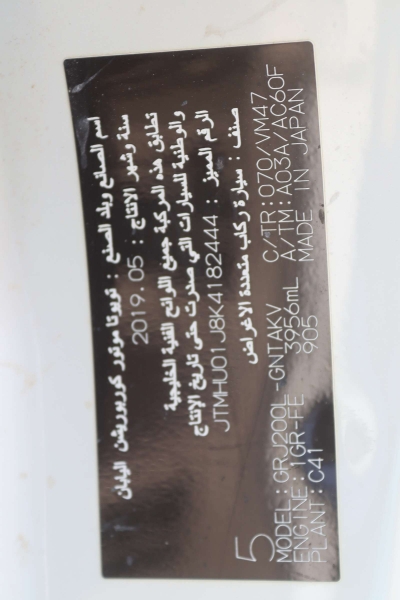 اسم الصانع وبلد الصنع : تويوتا موتور كوربوريشن اليابان
سنة وشهر الانتاج : 2019.05
تطابق هذه المركبة جميع اللوائح الفنية الخليجية
والوطنية للسيارات التي صدرت حتى تاريخ الانتاج
الرقم المميز : JTMHU01J8K4182444
صنف : سيارة ركاب متعددة الاغراض
5
MODEL:GRJ200L-GNTAKV C/TR:070/VM47
ENGINE:1GR-FE 3956mL A/TM:A03A/AC60F
PLANT:C41 905 MADE IN JAPAN